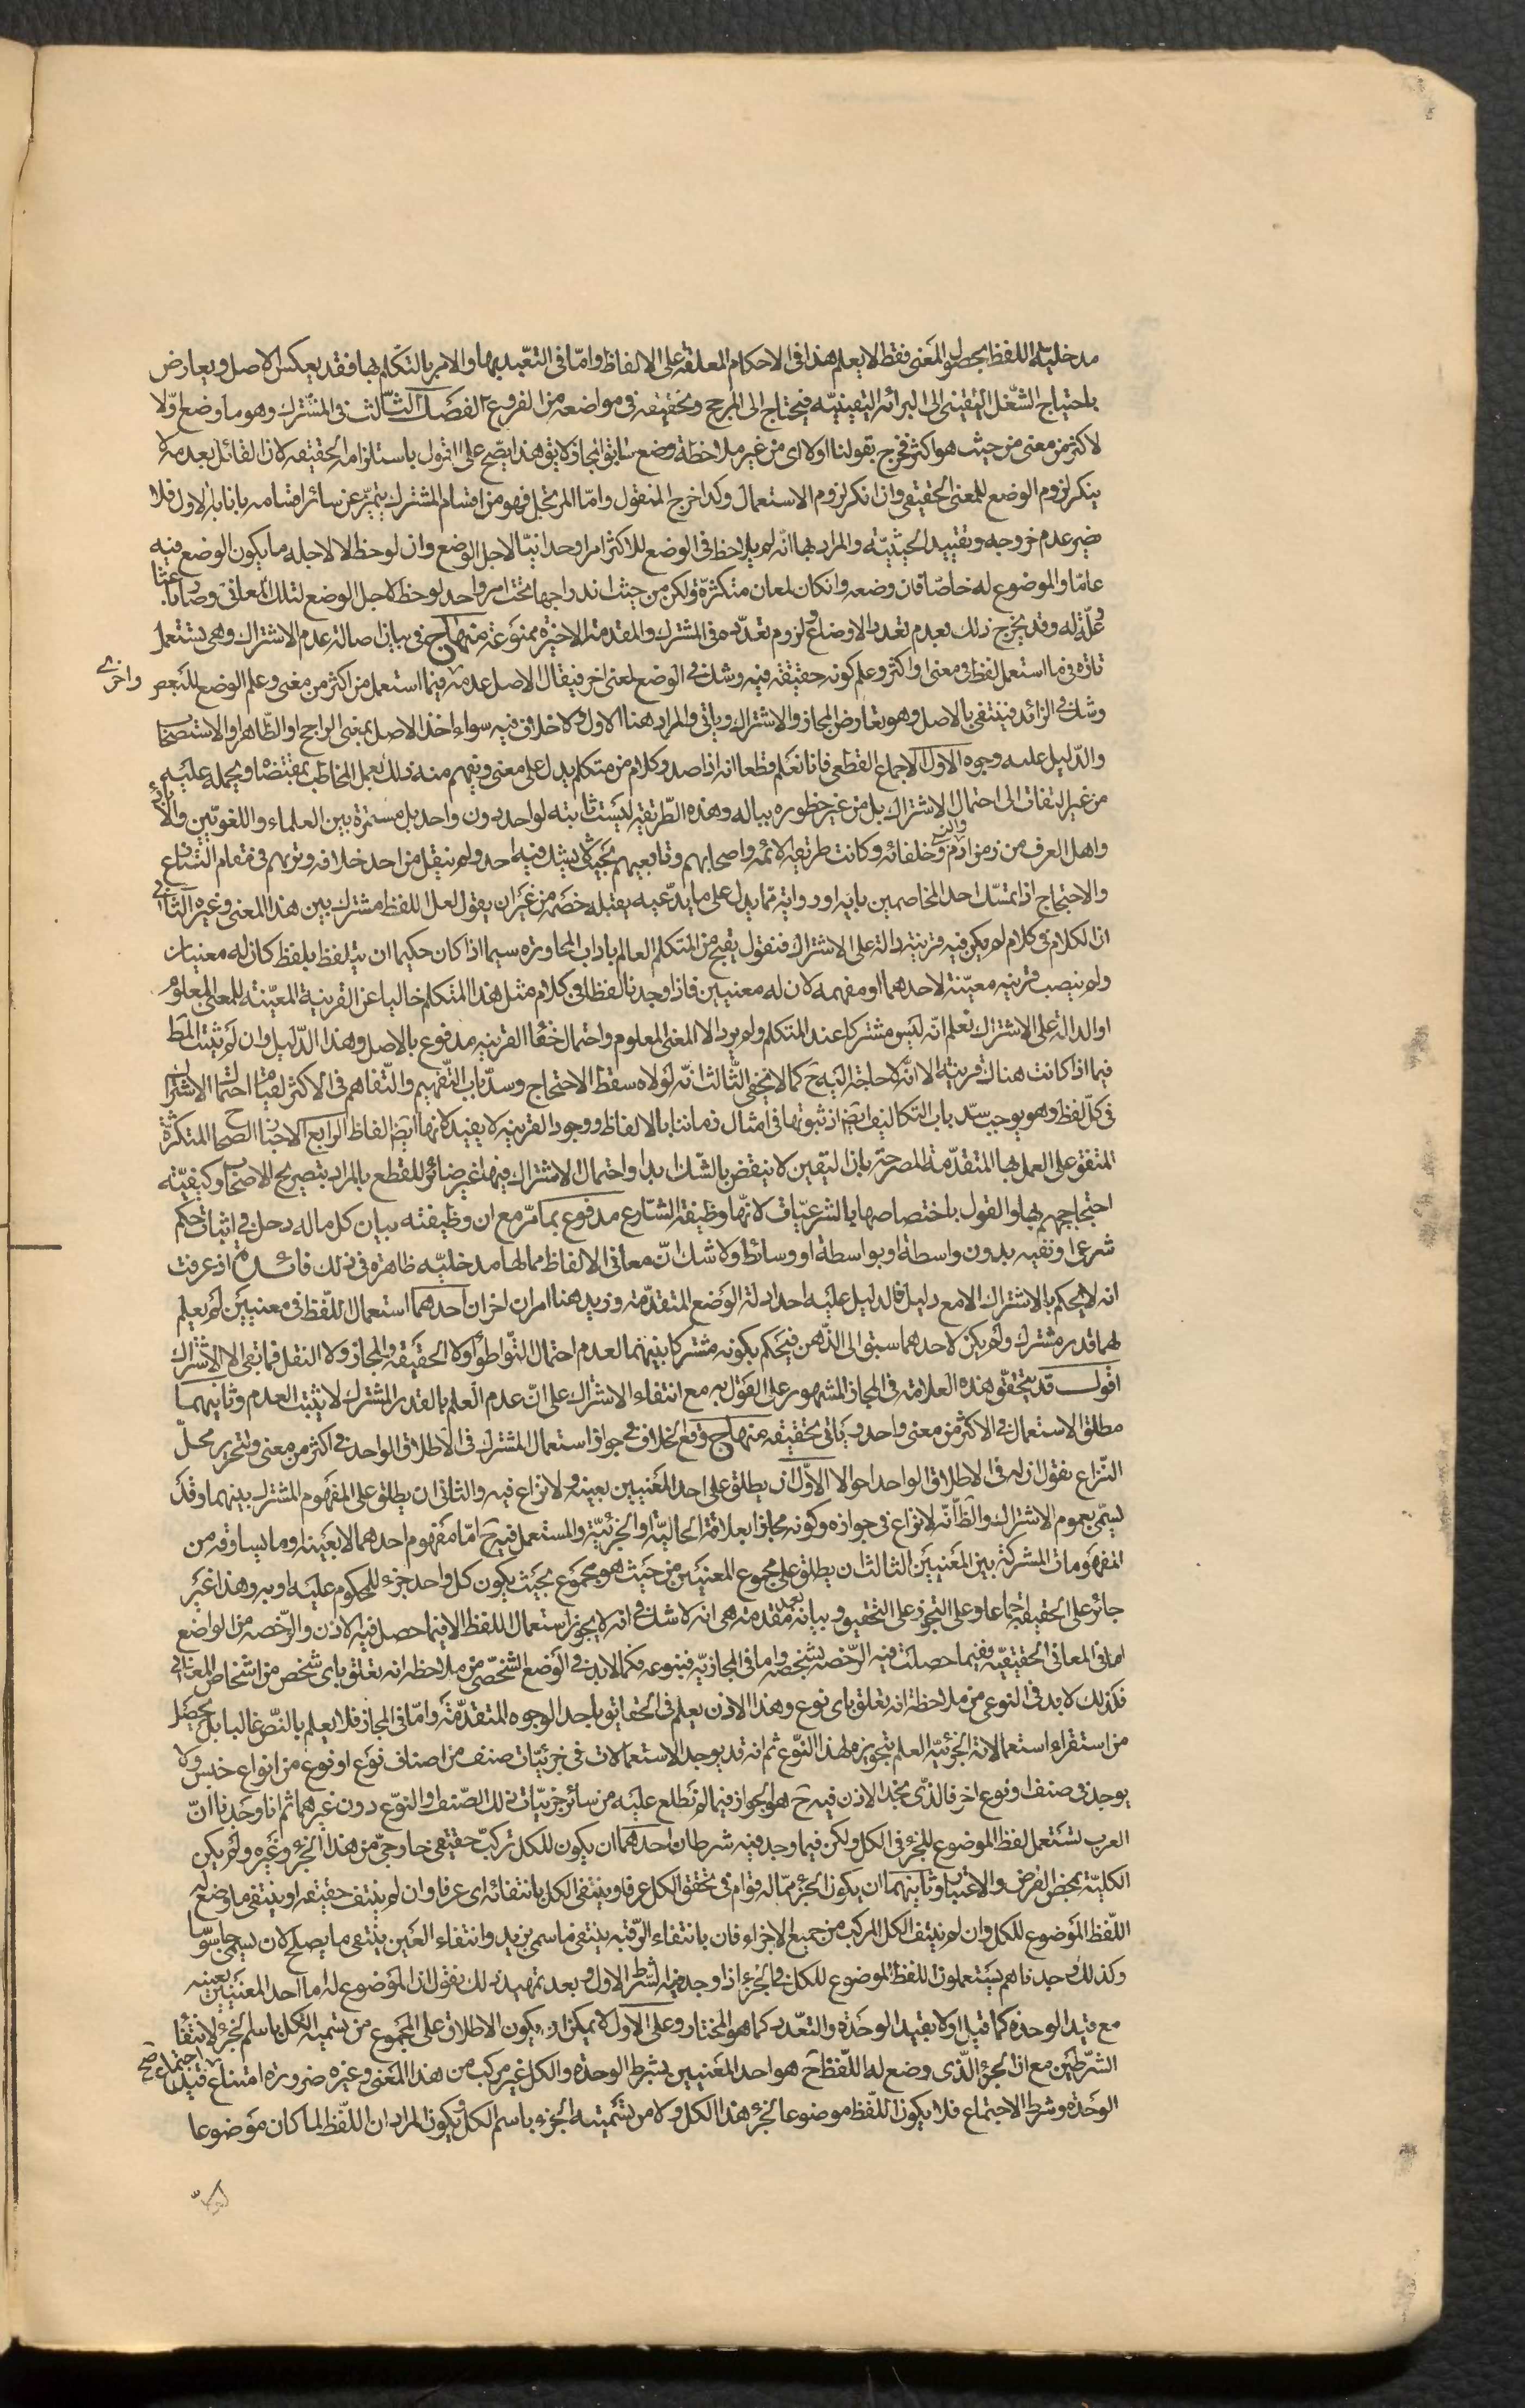 مدخليّة اللفظ بحصول المعنى فقط لا يعلم هذا فى الاحكام المعلقة على الالفاظ وامّا فى التعبّد بها والامر بالتكلم بها فقد يعكس الاصل ويعارض
باحتياج الشغل اليقينى الى البرائة اليقينيّة فيحتاج الى المرجح وتحقيقه فى مواضعه من الفروع الفصل الثالث فى المشترك وهو ما وضع اوّلا
لاكثر من معنى من حيث هو اكثر فخرج بقولنا اولا اى من غير ملاحظة وضع سابق المجاز لا يق هذا يصّح على القول باستلزامه الحقيقة لان القائل بعدمه لا
ينكر لزوم الوضع للمعنى الحقيقى وان انكر لزوم الاستعمال وكذا خرج المنقول وامّا المرتجل فهو من اقسام المشترك يتميّز عن سائر اقسامه بانا بالاول فلا
ضير عدم خروجه وبتقييد الحيثيّة والمراد بها انّه لم يلاحظ فى الوضع للاكثر امرا وحدانيّا لاجل الوضع وان لوحظ لا لاجله ما يكون الوضع فيه
عامّا والموضوع له خاصّا فان وضعه وانكان لمعان متكثرّة ولكن من حيث اندراجها تحت امر واحد لوحظ لاجل الوضع لتلك المعانى وصار باعثا
وعلّة له وقد يخرج ذلك بعدم تعدد الاوضاع ولزوم تعدّده فى المشترك والمقدمة الاخيرة ممنوعة منهاج فى بيان اصالة عدم الاشتراك وهى تستعمل
تارة فى ما استعمل لفظ فى معنى او اكثر وعلم كونه حقيقة فيه وشك فى الوضع لمعنى اخر فيقال الاصل عدمه فيما استعمل من اكثر من معنى وعلم الوضع للبعض واخرى
وشك فى الزائد فينتفى بالاصل وهو تعارض المجاز والاشتراك وياتى والمراد هنا الاول ولا خلاف فيه سواء اخذ الاصل بمعنى الراجح او الظاهر او الاستصحاب
والدّليل عليه وجوه الاول الاجماع القطعى فانا نعلم قطعا انه اذا صدر كلام من متكلم يدل على معنى ويفهم منه ذلك يعمل المخاطب بمقتضاه ويحمله عليه
من غير التفات الى احتمال الاشتراك بل من غير خطوره بباله وهذه الطّريقة ليست ثابتة لواحد دون واحد بل مستمرة بين العلماء واللغويّين والادباء
واهل العرف من زمن ادم وخلفائه وكانت طريقة الائمه واصحابهم وتابعيهم بحيث لا يشك فيه احد ولم ينقل من احد خلافه وتريهم فى مقام النزاع
والاحتجاج اذا تمسّك احد المخاصمين باية او رواية ممّا يدل على ما يدّعيه يقبله خصمه من غير ان يقول لعل اللفظ مشترك بين هذا المعنى وغيره الثانى
ان الكلام فى كلام لم يكن فيه قرينة دالة على الاشتراك فنقول يقبح من المتكلم العالم باداب المحاورة سيما اذا كان حكيما ان يتلفظ بلفظ كان له معنيان
ولم ينصب قرينه معيّنة لاحدهما او مفهمه لان له معنيين فاذا وجدنا لفظا فى كلام مثل هذا المتكلم خاليا عن القرينة المعيّنة للمعنى المعلوم
او الدالة على الاشتراك نعلم انّه ليس مشتركا عند المتكلم ولم يرد الا المعنى المعلوم واحتمال خفاء القرينه مدفوع بالاصل وهذا الدّليل وان لم يثبت المط
فيما اذا كانت هناك قرينة الا انّه لا حاجة اليه ح كما لا يخفى الثّالث انّه لولاه سقط الاحتجاج وسدّ باب التّفهيم والتّفاهم فى الاكثر لقيام احتمال الاشتراك
فى كلّ لفظ وهو يوجب سدّ باب التكاليف ايضا اذ ثبوتها فى امثال زماننا بالالفاظ ووجود القرينه لا يفيد لانها ايضا الفاظ الرابع الاخبار الصحاح المتكثرة
المتفق على العمل بها المتقدّمة المصرحة بان اليقين لا ينقض بالشّك ابدا واحتمال الاشتراك فيها غير ضائر للقطع بالمراد بتصريح الاصحاب وكيفيّة
احتجاجهم بها والقول باختصاصها بالشرعيّات لانّها وظيفة الشّارع مدفوع بما مرّ مع ان وظيفته بيان كل ما له دخل فى اثبات حكم
شرعى او نفيه بدون واسطة او بواسطة او وسائط ولا شك انّ معانى الالفاظ مما لها مدخليّة ظاهرة فى ذلك فائدة اذ عرفت
انه لا يحكم بالاشتراك الا مع دليل فالدليل عليه احد ادلة الوضع المتقدّمة وزيد هنا امران اخران احدهما استعمال اللّفظ فى معنيين لم يعلم
لهما قدر مشترك ولم يكن لاحدهما سبق الى الذّهن فيحكم بكونه مشتركا بينهما لعدم احتمال التّواطؤ ولا الحقيقة والمجاز ولا النقل فما بقى الا الاشتراك
اقول قد يتحقّق هذه العلامة فى المجاز المشهور على القول به مع انتفاء الاشتراك على انّ عدم العلم بالقدر المشترك لا يثبت العدم وثانيهما
مطلق الاستعمال فى الاكثر من معنى واحد وياتى تحقيقه منهاج وقع الخلاف فى جواز استعمال المشترك فى الاطلاق الواحد فى اكثر من معنى ولتحرير محلّ
النّزاع نقول ان له فى الاطلاق الواحد احوالا الاوّل ان يطلق على احد المعنيين بعينه ولا نزاع فيه والثانى ان يطلق على المفهوم المشترك بينهما وقد
يسمّى بعموم الاشتراك والظّ انّه لا نزاع فى جوازه وكونه مجازا بعلاقة الحاليّة او الجزئيّة والمستعمل فيه ح امّا مفهوم احدهما لا بعينه او ما يساوقه من
المفهومات المشتركة بين المعنيين الثالث ان يطلق على مجموع المعنيين من حيث هو مجموع بحيث يكون كل واحد جزء للمحكوم عليه او به وهذا غير
جائز على الحقيقة اجماعا وعلى التجوز على التحقيق وبيانه بعد مقدمة هى انه لا شك فى انه لا يجوز استعمال اللفظ الا فيما حصل فيه الاذن والرّخصه من الواضع
اما فى المعانى الحقيقيّة ففيما حصلت فيه الرّخصه بشخصه واما فى المجازيّة فبنوعه فكما لا بد فى الوضع الشخصّى من ملاحظه انه تعلق باى شخص من اشخاص المعانى
فكذلك لا بد فى النوعى من ملاحظة انه تعلق باى نوع وهذا الاذن يعلم فى الحقايق باحد الوجوه المتقدّمة وامّا فى المجاز فلا يعلم بالنّص غالبا بل يحصل
من استقراء استعمالاته الجزئيّة العلم بتجويزه لهذا النّوع ثم انه قد يوجد الاستعمالات فى جزئيّات صنف من اصناف نوع او نوع من انواع جنس ولا
يوجد فى صنف او نوع اخر فالذّى نجد الاذن فيه ح هو الجواز فيما لم نطلع عليه من سائر جزئيّات ذلك الصّنف والنوّع دون غيرهما ثم انا وجدنا انّ
العرب تستعمل لفظ الموضوع للجزء فى الكل ولكن فيما وجد فيه شرطان احدهما ان يكون للكل تركبّ حقيقى خارجىّ من هذا الجزء وغيره ولم يكن
الكليّة بمحض الفرض والاعتبار وثانيهما ان يكون الجزء ممّا له قوام فى تحقق الكل عرفا وينتفى الكل بانتفائه اى عرفا وان لم ينتف حقيقه او ينتفى ما وضع له
اللّفظ الموضوع للكل وان لم ينتف الكل المركب من جميع الاجزاء فان بانتفاء الرّقبة ينتفى ما سمى بزيد وانتفاء العين ينتفى ما يصلح لان يسمى جاسوسا
وكذلك وجدناهم يستعملون اللفظ الموضوع للكل فى الجزء اذا وجد فيه الشّرط الاول وبعد تمهيد ذلك نقول ان الموضوع له اما احد المعنيين بعينه
مع قيد الوحدة كما قيل او لا بقيد الوحدة والتعدّد كما هو المختار وعلى الاول لا يمكن ان يكون الاطلاق على المجموع من تسمية الكل باسم الجزء لانتفاء
الشرّطين مع ان الجزء الّذى وضع له اللّفظ ح هو احد المعنيين بشرط الوحدة والكل غير مركب من هذا المعنى وغيره ضرورة امتناع اجتماع قيد صح
الوحدة وشرط الاجتماع فلا يكون اللّفظ موضوعا لجزء هذا الكل ولا من تسمية الجزء باسم الكل ويكون المراد ان اللّفظ لما كان موضوعا